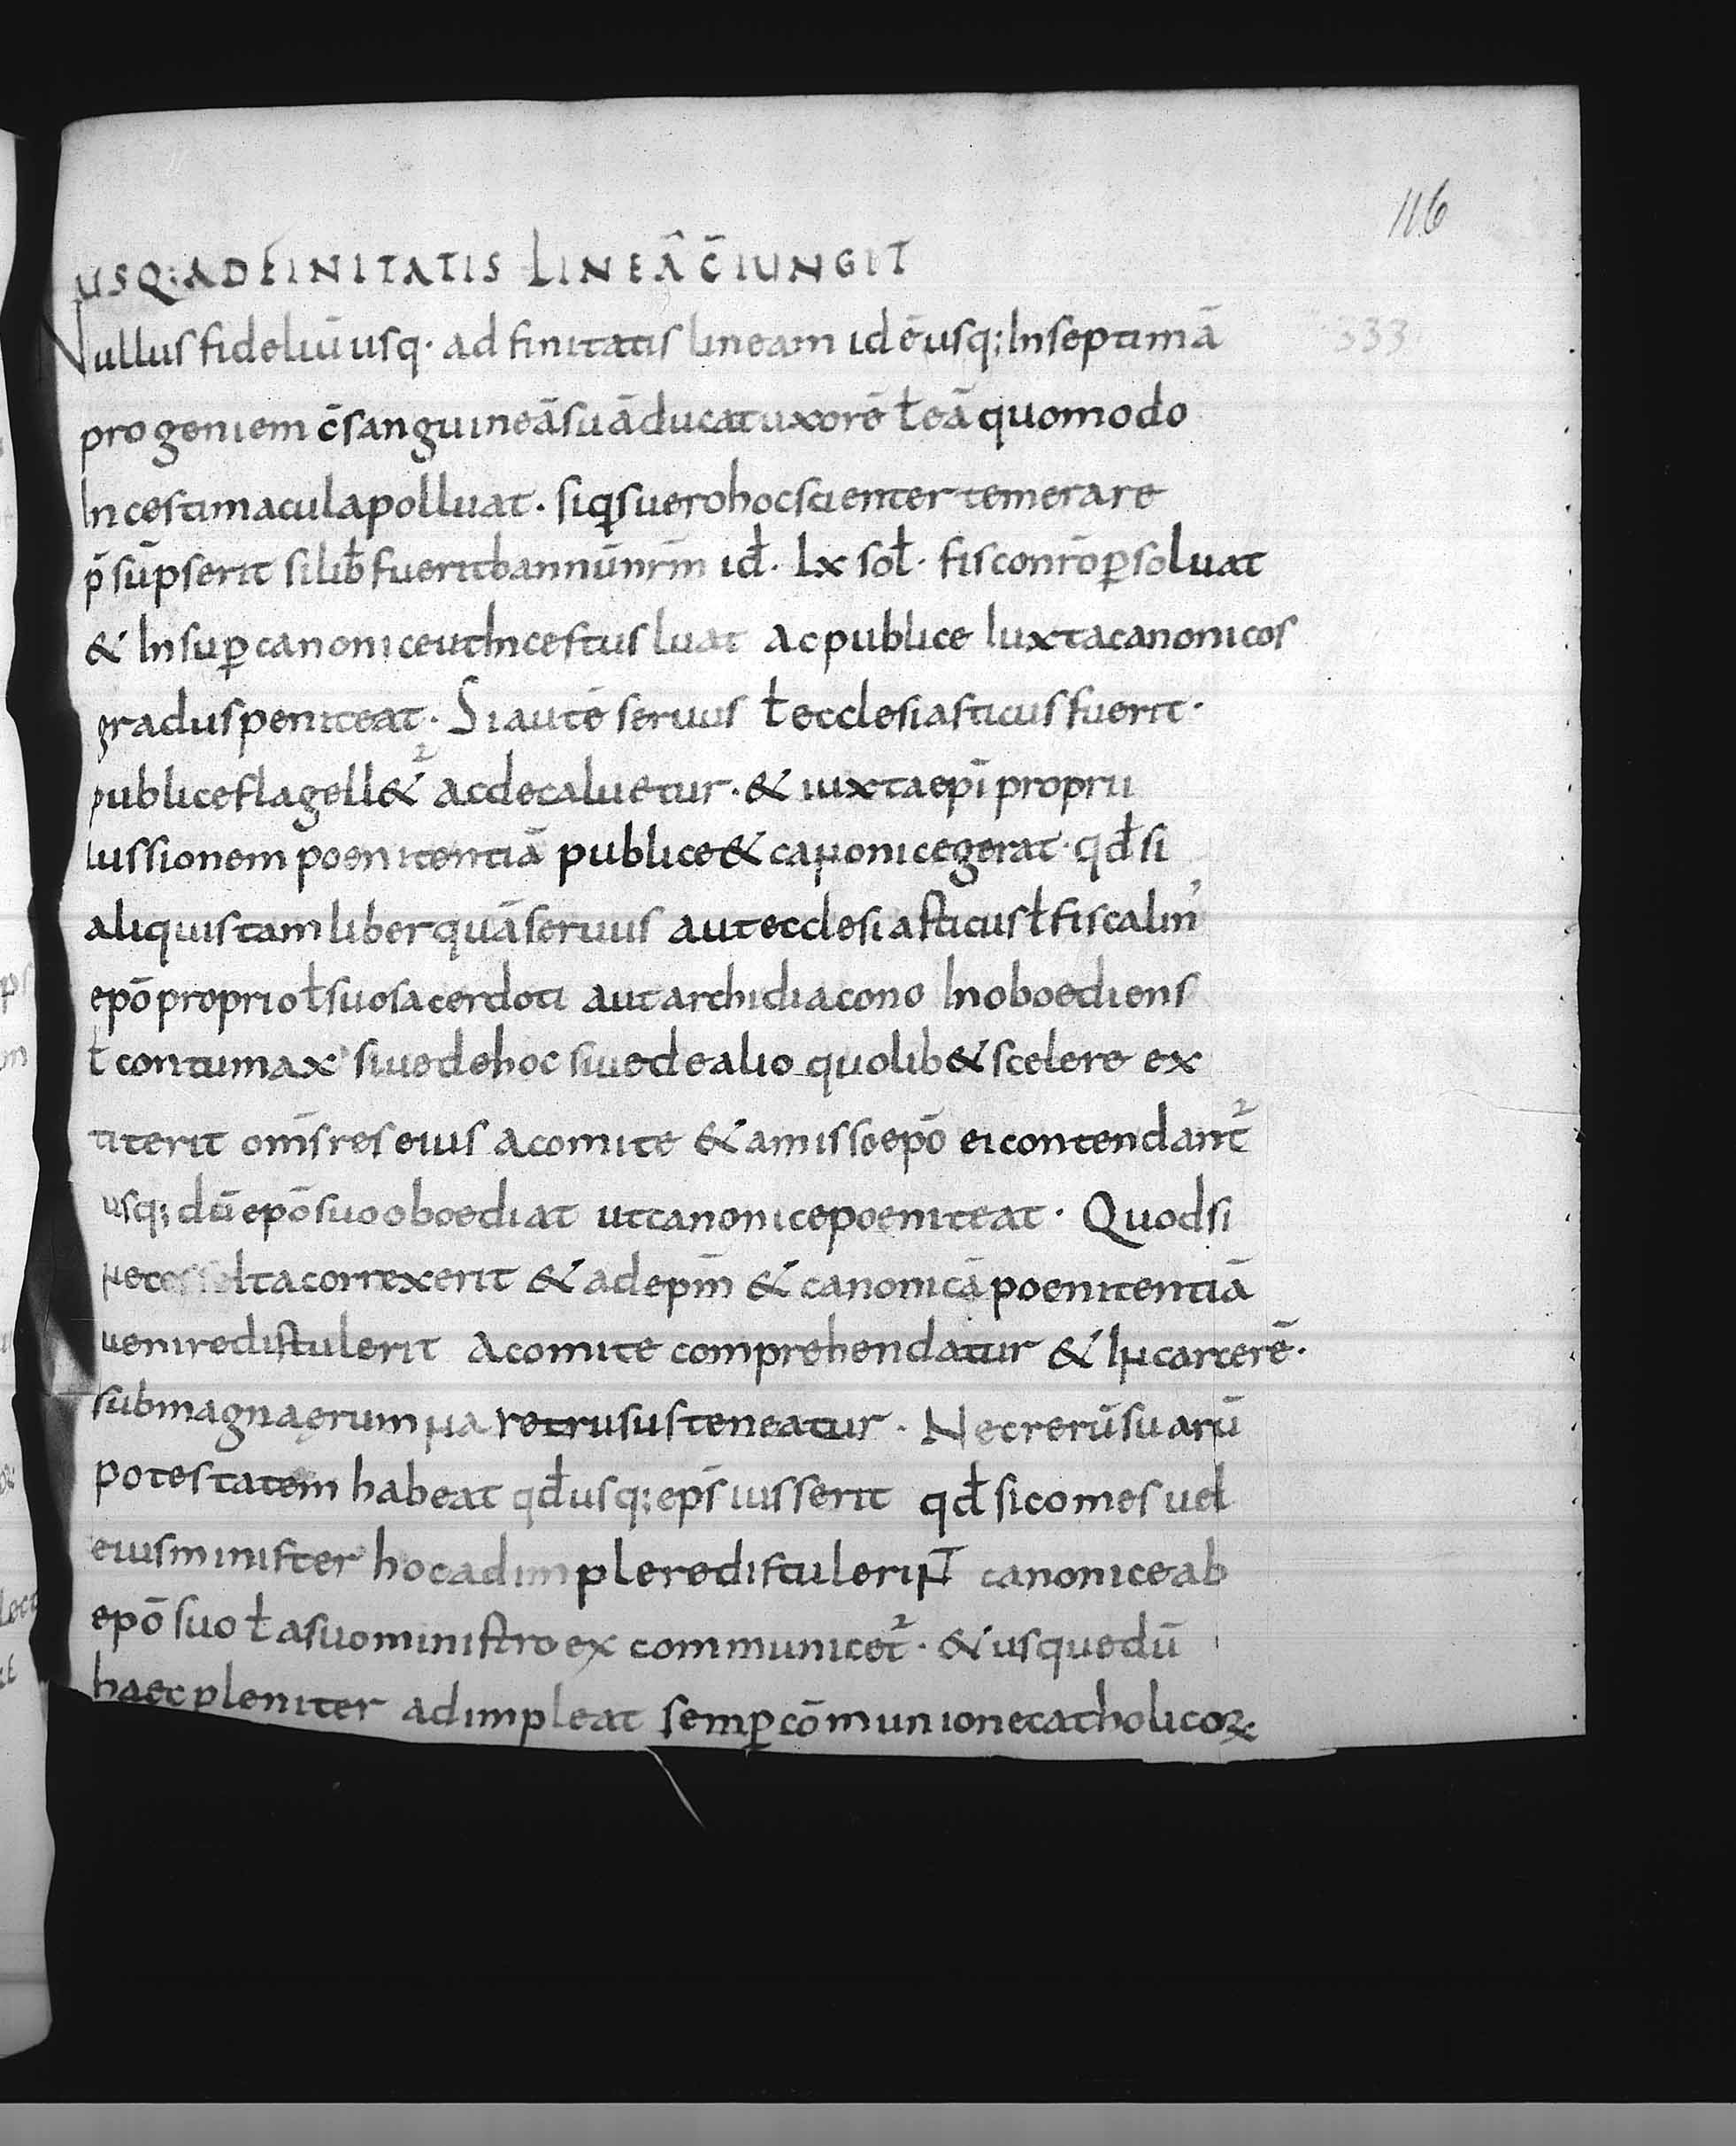 116
USQ; ADFINITATIS LINEĀ C̄IUNGIT
Nullus fideliū usq· ad finitatis lineam id ē usq; In septimā
333
progeniem c̄sanguineā suā ducat uxorē ł eā quomodo
Incesti macula polluat· si qs uero hoc scienter temerare
p̄sūpserit si lib̄ fuerit bannū nr̄m id̄· lx sol̄· fisco nr̄o ꝑsoluat
& Insuꝑ canonice ut Incestus luat ac publice Iuxta canonicos
gradus peniteat· Si autē seruus ł ecclesiasticus fuerit·
publice flagell&᷑ ac decaluetur· & iuxta epī proprii
Iussionem poenitentiā publice & canonice gerat· qd̄ si
aliquis tam liber quā seruus aut ecclesiasticus ł fiscalin'
epō proprio ł suo sacerdoti aut archidiacono Inoboediens
ł contumax siue de hoc siue de alio quolib& scelere ex
titerit om̄s res eius a comite & a misso epō ei contendant᷑
usq; dū epō suo oboediat ut canonice poeniteat· Quod si
nec se ita correxerit & ad ep̄m & canonicā poenitentiā
uenire distulerit a comite comprehendatur & In carcerē·
sub magna ęrumna retrusus teneatur· Nec rerū suarū
potestatem habeat qd̄usq; ep̄s iusserit qd̄ si comes uel
eius minister hoc adimplere distulerint canonice ab
epō suo ł a suo ministro excommunicet᷑· & usquedū
haec pleniter adimpleat semꝑ cōmunione catholicoꝝ